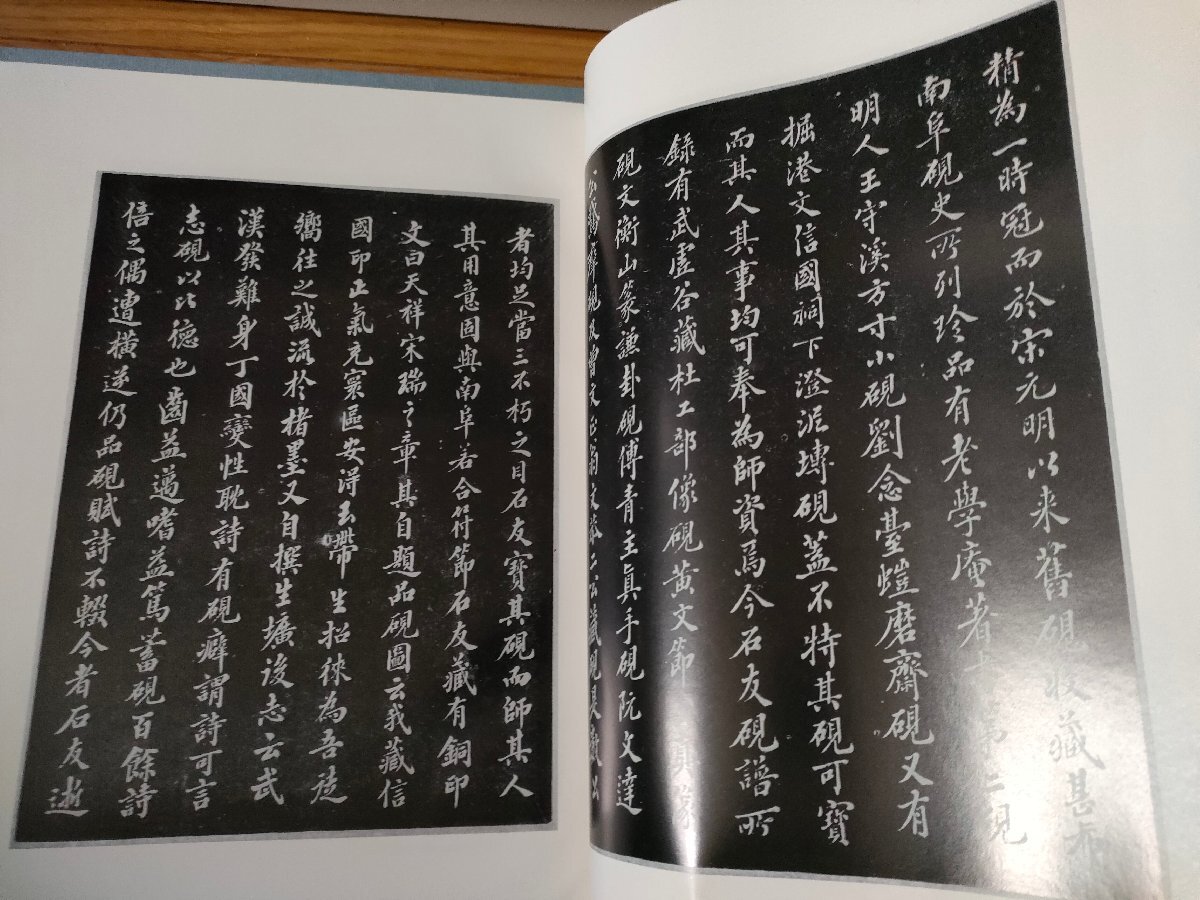 精為一時冠而於宋元明以来舊硯收藏甚
南阜硯史所列珍品有老學庵著
明人王守溪方寸小硯劉念臺愷磨齋硯又有
掘港文信國祠下澄泥塼硯蓋不特其硯可寶
而其人其事均可奉為師資焉今石友硯譜所
錄有武虛谷藏杜工部像硯黃文節
硯文衡山篆謙卦硯傅青主真手硯阮文達
者均足當三不朽之目石友寶其硯而師其人
其用意固與南阜若合符節石友藏有銅印
文曰天祥宋瑞之章其自題品硯圖云我藏信
國印正氣充寰區安得玉帶生招徠為吾徒
嚮往之誠流於楮墨又自撰生壙後志云武
漢發難身丁國變性耽詩有硯癖謂詩可言
志硯以比德也齒益邁嗜益篤蓄硯百餘詩
倍之偶遭橫逆仍品硯賦詩不輟今者石友逝